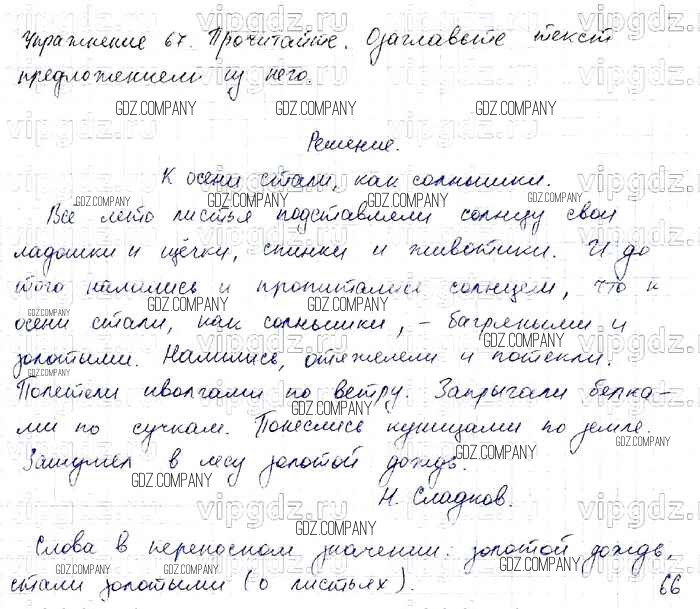 Упражнение 67. Прочитайте. Озаглавьте текст
предложением из него.
Решение.
К осени стали, как солнышки.
Все лето листья подставляли солнцу свои
ладошки и щёчки, спинки и животики. И до
того налились и пропитались солнцем, что к
осени стали, как солнышки, – багряными и
золотыми. Налились, отяжелели и потекли.
Полетели иволгами по ветру. Запрыгали белка-
ми по сучкам. Понеслись куницами по земле.
Зашумел в лесу золотой дождь.
Н. Сладков.
Слова в переносном значении: золотой дождь,
стали золотыми (о листьях).
66
vipgdz.ru
GDZ.COMPANY